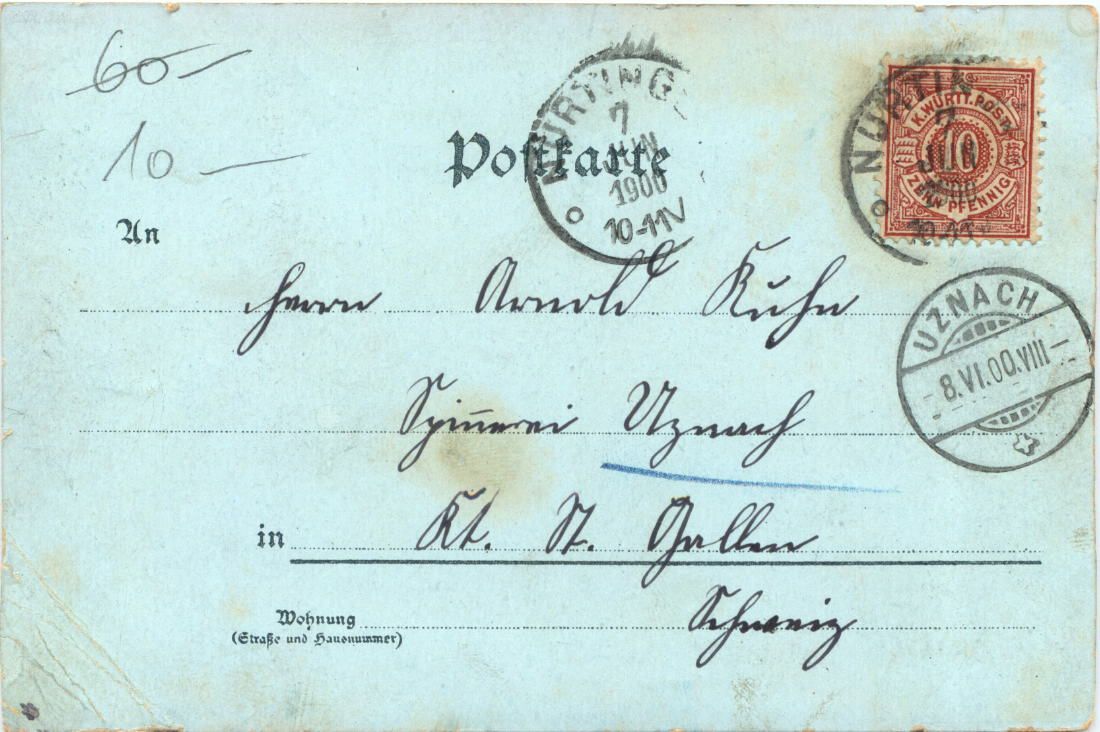 60-
10 -
NÜRTINGE
7
JUN
1900
10-11V
NÜRTIN
7
JUN
1900
10-11V
K. WÜRTT. POST
10
ZEHN PFENNIG
Postkarte
An
Herrn Arnold Kuhn
UZNACH
8.VI.00.VIII
Spinnerei Uznach
in Kt. St. Gallen
Wohnung
(Straße und Hausnummer)
Schweiz